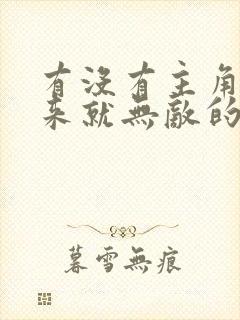 有沒有主角
来就無敵的
暮雪無痕